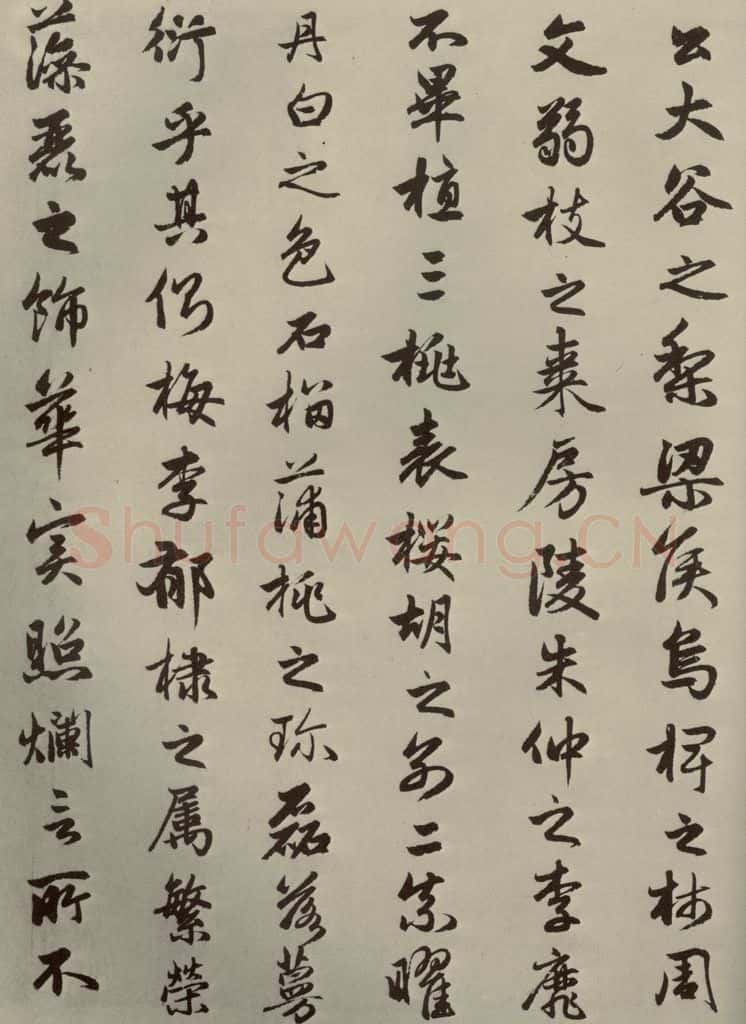 公大谷之梨梁侯烏椑之柿周
文弱枝之棗房陵朱仲之李靡
不畢植三桃表櫻胡之別二柰曜
丹白之色石榴蒲桃之珍磊落蔓
衍乎其側梅李郁棣之属繁榮
藻麗之飾華實照爛言所不
Shufawang.CN